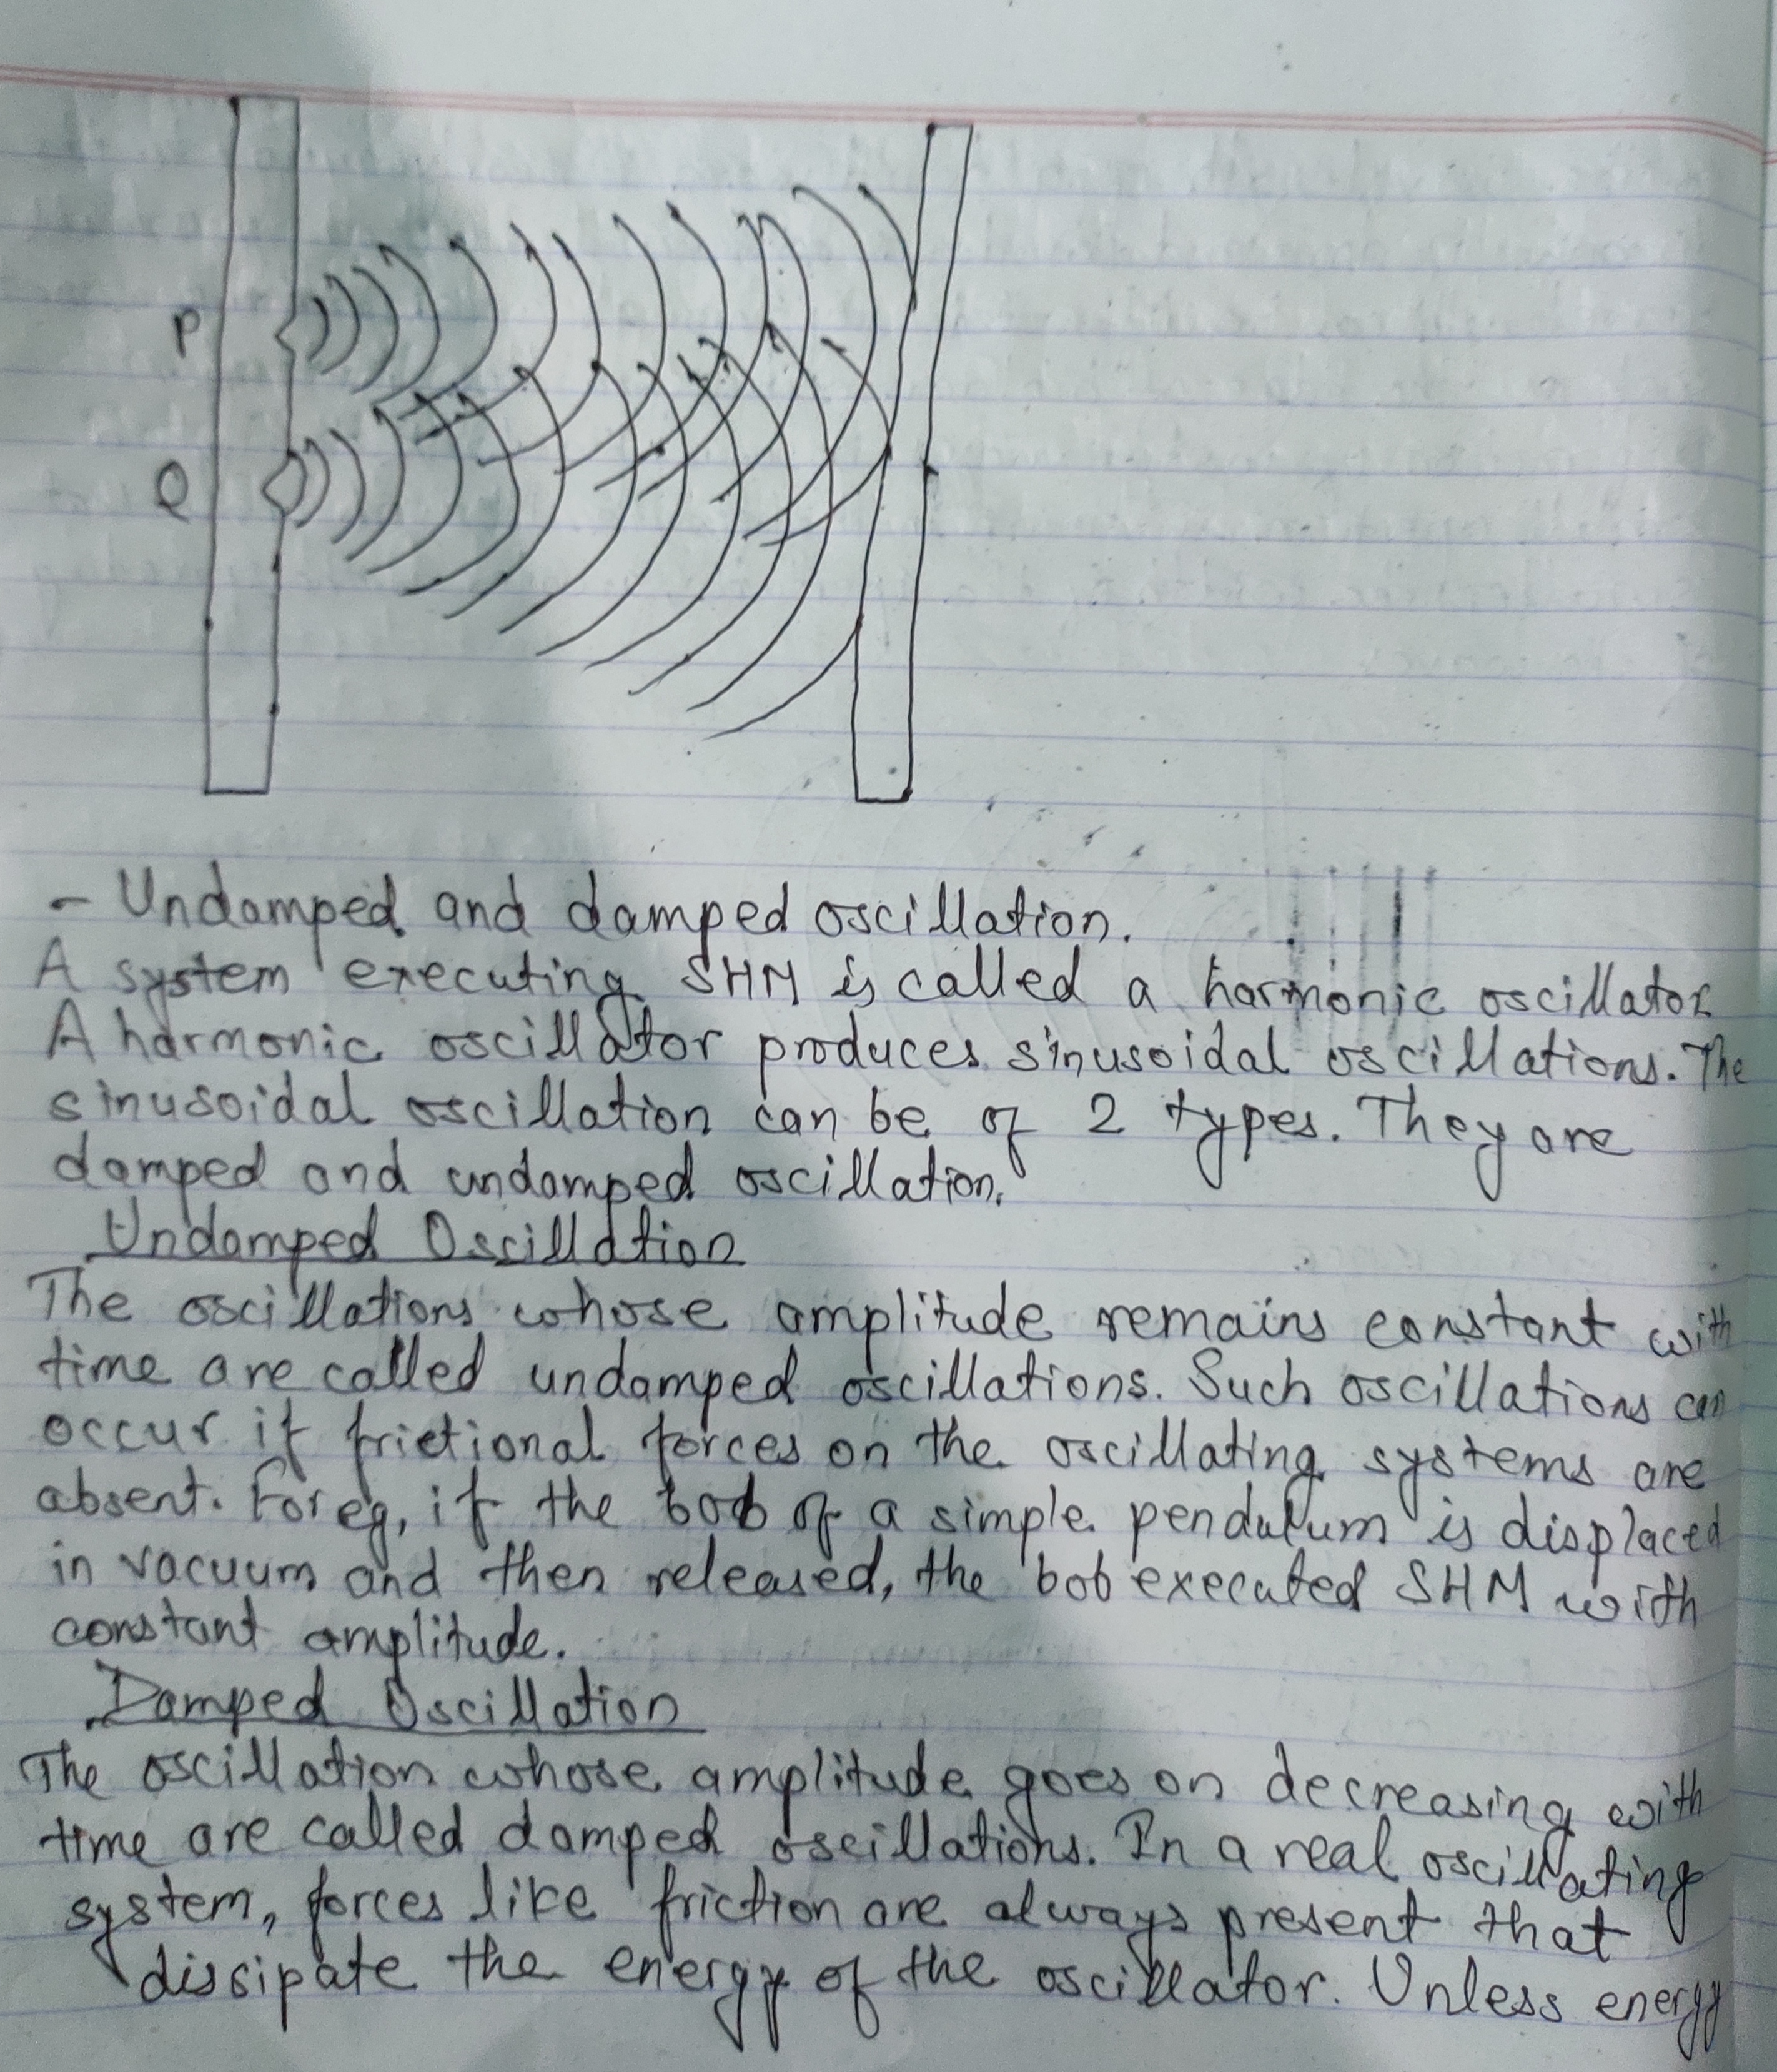 P
Q
- Undamped and damped oscillation.
A system executing SHM is called a harmonic oscillator
A harmonic oscillator produces sinusoidal oscillations. The
sinusoidal oscillation can be of 2 types. They are
damped and undamped oscillation.
Undamped Oscillation
The oscillations whose amplitude remains constant with
time are called undamped oscillations. Such oscillations can
occur if frictional forces on the oscillating systems are
absent. For eg, if the bob of a simple pendulum is displaced
in vacuum and then released, the bob executed SHM with
constant amplitude.
Damped Oscillation
The oscillation whose amplitude goes on decreasing with
time are called damped oscillations. In a real oscillating
system, forces like friction are always present that
dissipate the energy of the oscillator. Unless energy